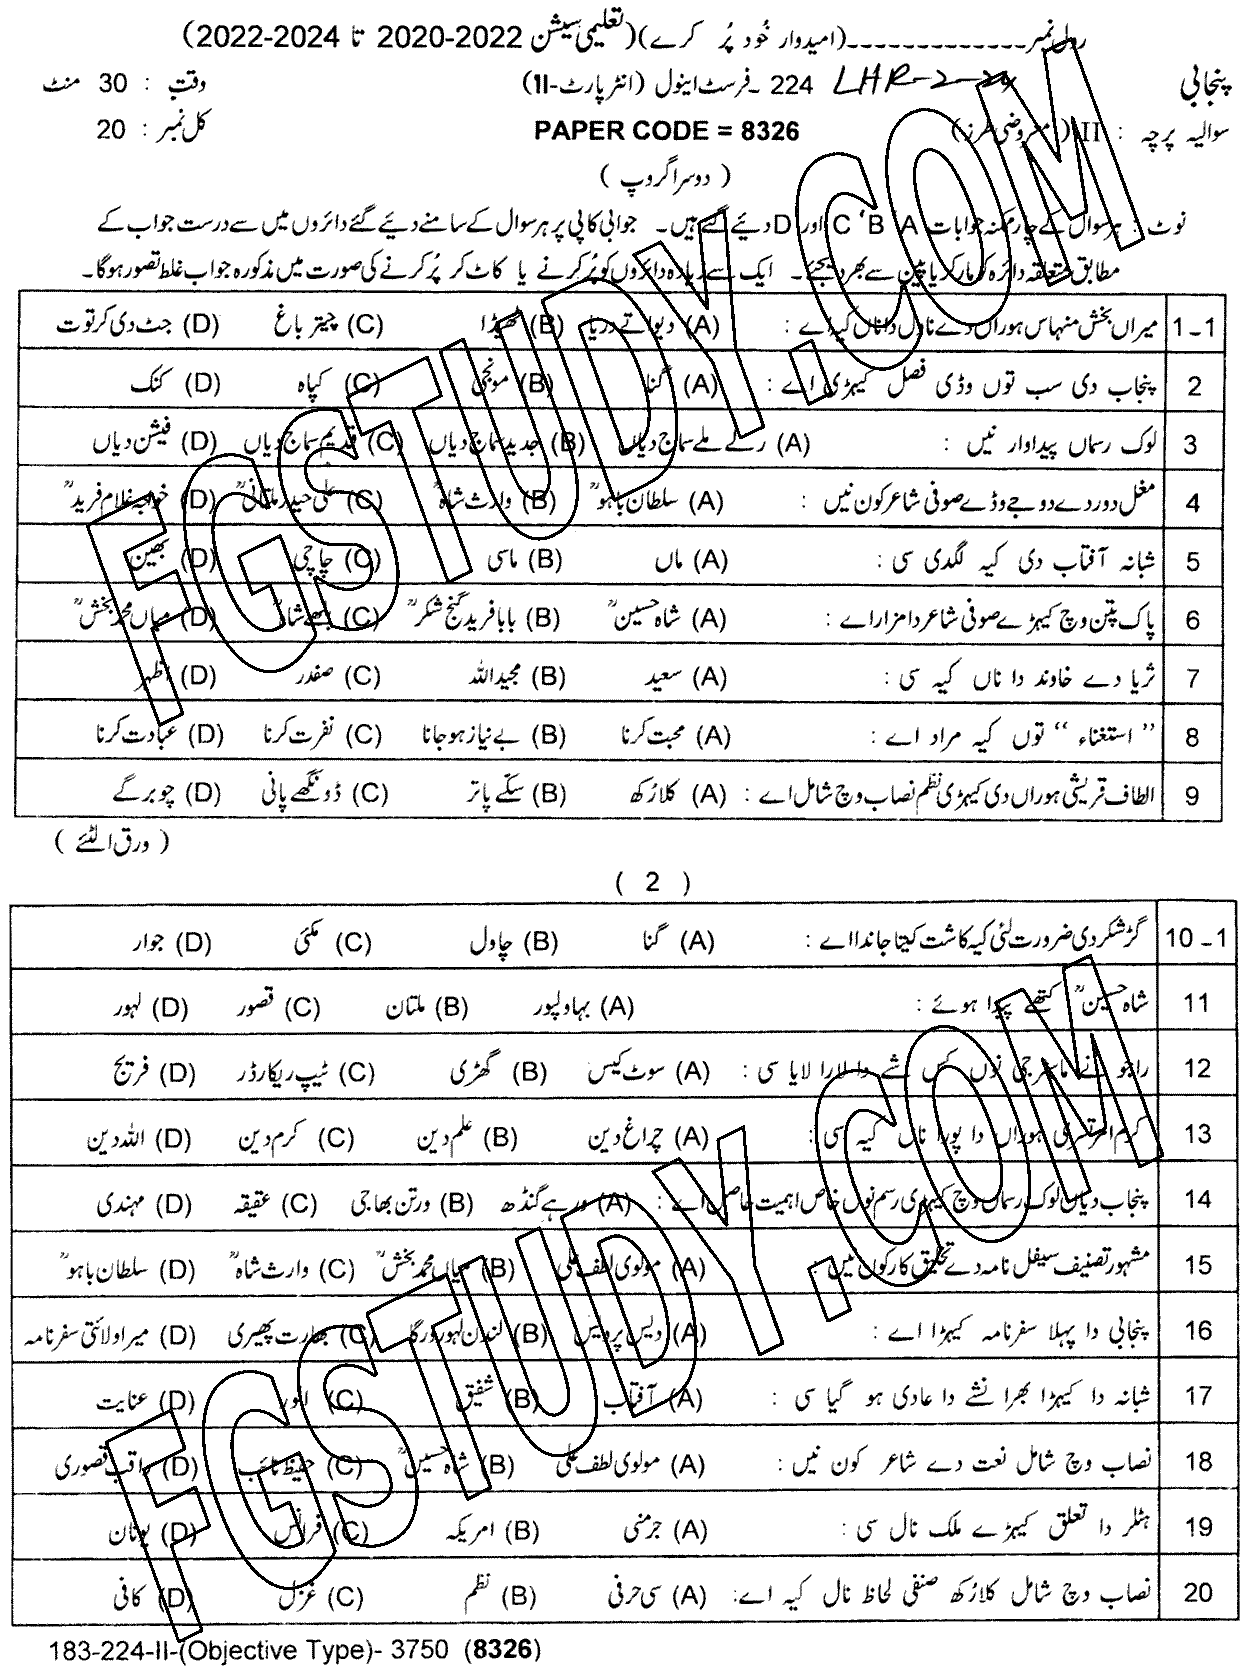 رول نمبر ـ ـ ـ ـ ـ ـ ـ ـ ـ ـ ـ ـ ـ (امیدوار خُود پُر کرے)(تعلیمی سیشن 2022-2020 تا 2024-2022)
پنجابی LHR-2-24 224 ـ فرسٹ اینول (انٹر پارٹ-II) وقت : 30 منٹ
سوالیہ پرچہ : II (معروضی طرز) PAPER CODE = 8326 کل نمبر : 20
( دوسرا گروپ )
نوٹ : ہر سوال کے چار ممکنہ جوابات A ‘B ‘C اور D دیئے گئے ہیں۔ جوابی کاپی پر ہر سوال کے سامنے دیئے گئے دائروں میں سے درست جواب کے
مطابق متعلقہ دائرہ کو مارکر یا پین سے بھر دیجئے۔ ایک سے زیادہ دائروں کو پُر کرنے یا کاٹ کر پُر کرنے کی صورت میں مذکورہ جواب غلط تصور ہوگا۔
1ـ1 میراں بخش منہاس ہوراں دے ناول دا ناں کیہ اے : (A) دیوا تے دریا (B) ٹھیڈا (C) چیتر باغ (D) جٹ دی کرتوت
2 پنجاب دی سب توں وڈی فصل کیہڑی اے : (A) گنا (B) مونجی (C) کپاہ (D) کنک
3 لوک رسماں پیداوار نیں : (A) رلے ملے سماج دیاں (B) جدید سماج دیاں (C) قدیم سماج دیاں (D) فیشن دیاں
4 مغل دور دے دوجے وڈے صوفی شاعر کون نیں : (A) سلطان باہوؒ (B) وارث شاہؒ (C) علی حیدر ملتانیؒ (D) خواجہ غلام فریدؒ
5 شبانہ آفتاب دی کیہ لگدی سی : (A) ماں (B) ماسی (C) چاچی (D) بھین
6 پاک پتن وچ کیہڑے صوفی شاعر دا مزار اے : (A) شاہ حسینؒ (B) بابا فرید گنج شکرؒ (C) بلھے شاہؒ (D) میاں محمد بخشؒ
7 ثریا دے خاوند دا ناں کیہ سی : (A) سعید (B) مجید اللہ (C) صفدر (D) اظہر
8 ” استغناء “ توں کیہ مراد اے : (A) محبت کرنا (B) بے نیاز ہو جانا (C) نفرت کرنا (D) عبادت کرنا
9 الطاف قریشی ہوراں دی کیہڑی نظم نصاب وچ شامل اے : (A) کلا رُکھ (B) سکّے پاتر (C) ڈونگھے پانی (D) چوبرگے
( ورق الٹئے )
( 2 )
1ـ10 گڑ شکر دی ضرورت لئی کیہ کاشت کیتا جاندا اے : (A) گنا (B) چاول (C) مکئی (D) جوار
11 شاہ حسینؒ کتھے پیدا ہوئے : (A) بہاولپور (B) ملتان (C) قصور (D) لہور
12 راجو نے ماسٹر جی نوں کس شے دا لارا لایا سی : (A) سوٹ کیس (B) گھڑی (C) ٹیپ ریکارڈر (D) فریج
13 کرم امرتسری ہوراں دا پورا نال کیہ سی : (A) چراغ دین (B) علم دین (C) کرم دین (D) اللہ دین
14 پنجاب دیاں لوک رسماں وچ کیہڑی رسم نوں خاص اہمیت حاصل اے : (A) ورہے گنڈھ (B) ورتن بھاجی (C) عقیقہ (D) مہندی
15 مشہور تصنیف سیفل نامہ دے تخلیق کار کون نیں : (A) مولوی لطف علی (B) میاں محمد بخشؒ (C) وارث شاہؒ (D) سلطان باہوؒ
16 پنجابی دا پہلا سفرنامہ کیہڑا اے : (A) دیس پردیس (B) لندن لہور ورگا (C) بھارت پھیری (D) میرا ولائتی سفرنامہ
17 شبانہ دا کیہڑا بھرا نشے دا عادی ہو گیا سی : (A) آفتاب (B) شفیق (C) انور (D) عنایت
18 نصاب وچ شامل نعت دے شاعر کون نیں : (A) مولوی لطف علی (B) شاہ حسینؒ (C) حفیظ تائب (D) راقب قصوری
19 ہٹلر دا تعلق کیہڑے ملک نال سی : (A) جرمنی (B) امریکہ (C) فرانس (D) یونان
20 نصاب وچ شامل کلا رُکھ صنفی لحاظ نال کیہ اے: (A) سی حرفی (B) نظم (C) غزل (D) کافی
183-224-II-(Objective Type)- 3750 (8326)
FGSTUDY.COM
FGSTUDY.COM